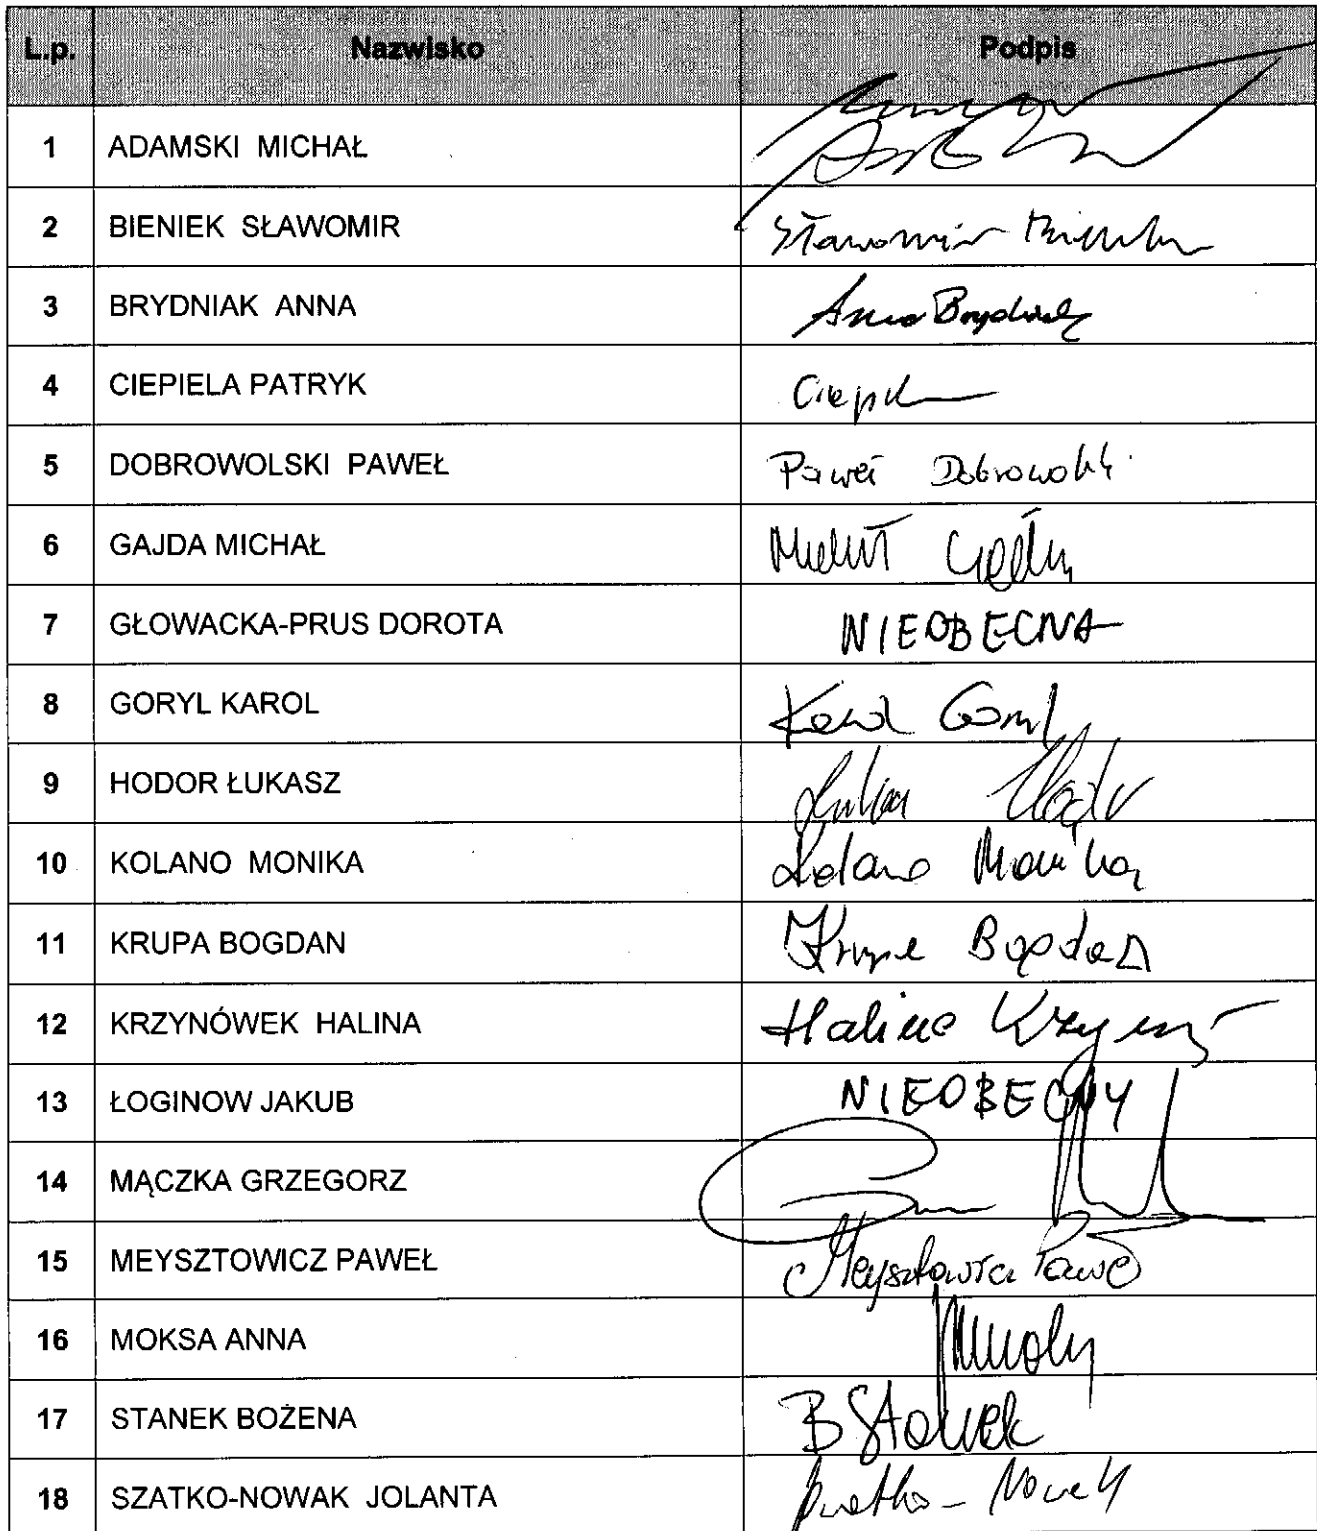 L.p. Nazwisko Podpis
1 ADAMSKI MICHAŁ
2 BIENIEK SŁAWOMIR Sławomir
3 BRYDNIAK ANNA Anna Brydniak
4 CIEPIELA PATRYK
5 DOBROWOLSKI PAWEŁ Paweł Dobrowolski
6 GAJDA MICHAŁ Michał Gajda
7 GŁOWACKA-PRUS DOROTA NIEOBECNA
8 GORYL KAROL Karol Goryl
9 HODOR ŁUKASZ Łukasz Hodor
10 KOLANO MONIKA Kolano Monika
11 KRUPA BOGDAN Krupa Bogdan
12 KRZYNÓWEK HALINA Halina
13 ŁOGINOW JAKUB NIEOBECNY
14 MĄCZKA GRZEGORZ
15 MEYSZTOWICZ PAWEŁ Meysztowicz Paweł
16 MOKSA ANNA
17 STANEK BOŻENA B Stanek
18 SZATKO-NOWAK JOLANTA Szatko-Nowak